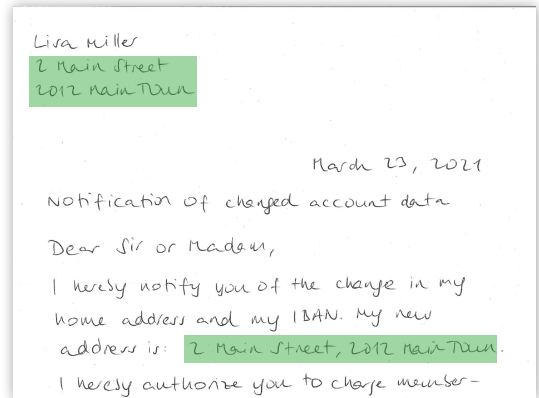 Lisa Miller
2 Main Street
2012 Main Town
March 23, 2021
Notification of changed account data
Dear Sir or Madam,
I hereby notify you of the change in my
home address and my IBAN. My new
address is: 2 Main Street, 2012 Main Town.
I hereby authorize you to charge member-